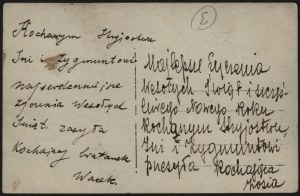 Kochanym Stryjostwu
Ini i Zygmuntowi
najserdeczniejsze
życzenia Wesołych
Świąt. zasyła
Kochający bratanek
Wacek.
Najlepsze życzenia
Wesołych Świąt i szczęś-
liwego Nowego Roku
kochanym Stryjostwu,
Ini i Zygmuntowi
przesyła kochająca
Zosia